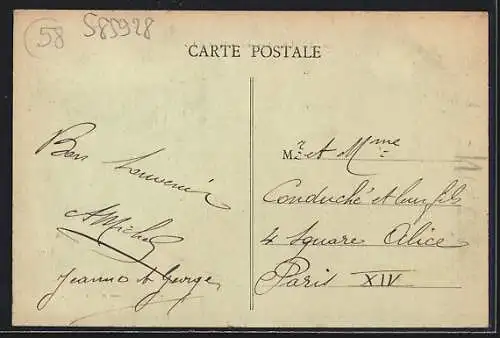 58
585928
CARTE POSTALE
Bon Souvenir
Jeanno et George
Mr et Mme
Conduché et leur fils
4 Square Alice
Paris XIV